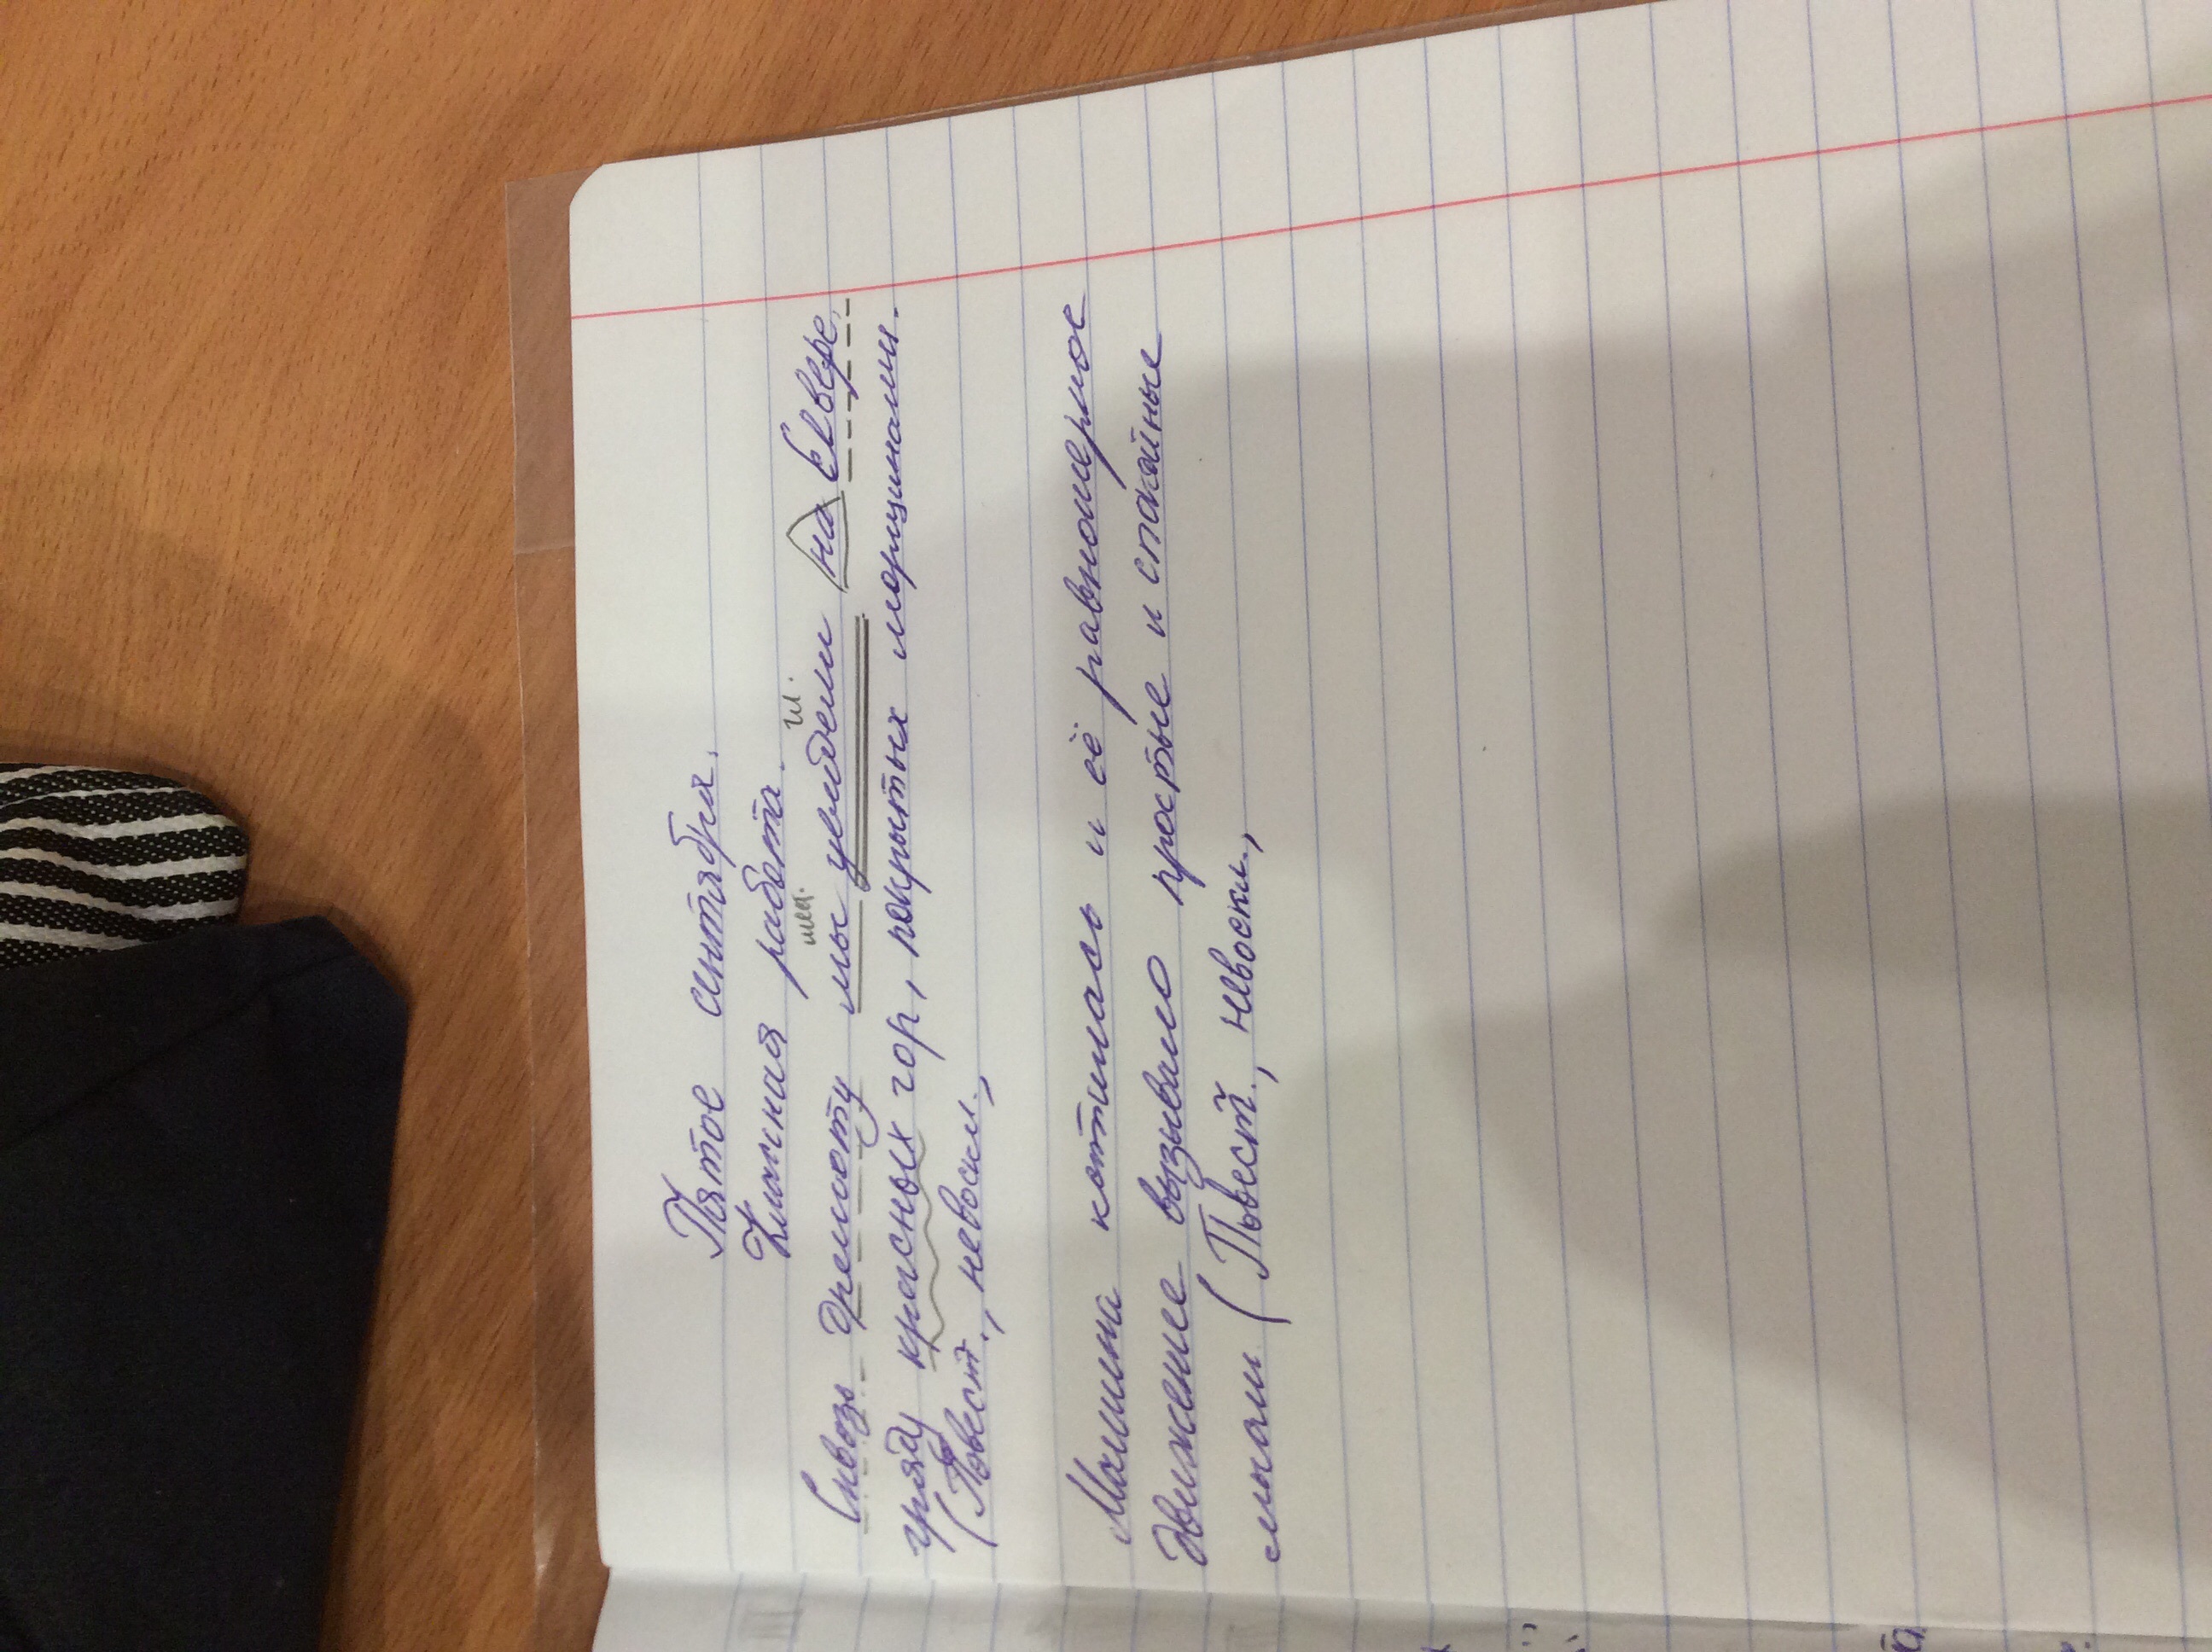 Пятое сентября.
Классная работа.
мест. гл.
Сквозь дремоту мы увидели на севере,
гряду красных гор, покрытых морщинами.
(Повест., невоскл.,
Машина катилась и её равномерное
движение вызывало простые и спокойные
мысли (Повест., невоскл.,